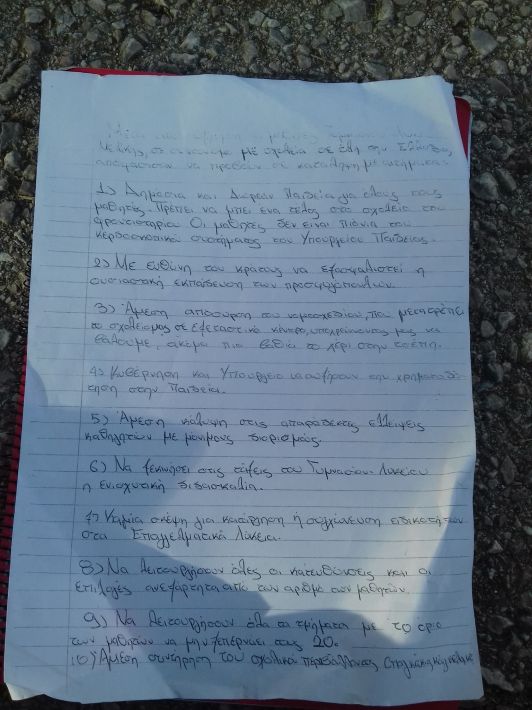 με σχολεία σε όλη την Ελλάδα,
αποφάσισαν να προβούν σε κατάληψη με αιτήματα:
1) Δημόσια και Δωρεάν Παιδεία για όλους τους
μαθητές. Πρέπει να μπει ένα τέλος στα σχολεία του
φροντιστηρίου. Οι μαθητές δεν είναι πιόνια του
κερδοσκοπικού συστήματος του Υπουργείου Παιδείας.
2) Με ευθύνη του κράτους να εξασφαλιστεί η
ουσιαστική εκπαίδευση των προσφυγόπουλων.
3) Άμεση απόσυρση του νομοσχεδίου, που μετατρέπει
το σχολείο μας σε εξεταστικό κέντρο, υποχρεώνοντάς μας να
βάλουμε, ακόμα πιο βαθιά το χέρι στην τσέπη.
4) Κυβέρνηση και Υπουργείο να αυξήσουν την χρηματοδό-
τηση στην Παιδεία.
5) Άμεση κάλυψη στις απαράδεκτες ελλείψεις
καθηγητών με μόνιμους διορισμούς.
6) Να ξεκινήσει στις τάξεις του Γυμνασίου-Λυκείου
η ενισχυτική διδασκαλία.
7) Καμία σκέψη για κατάργηση ή συγχώνευση ειδικοτήτων
στα Επαγγελματικά Λύκεια.
8) Να λειτουργήσουν όλες οι κατευθύνσεις και οι
επιλογές ανεξάρτητα από τον αριθμό των μαθητών.
9) Να λειτουργήσουν όλα τα τμήματα με το όριο
των μαθητών να μην ξεπερνάει τους 20.
10) Άμεση συντήρηση του σχολικού περιβάλλοντος